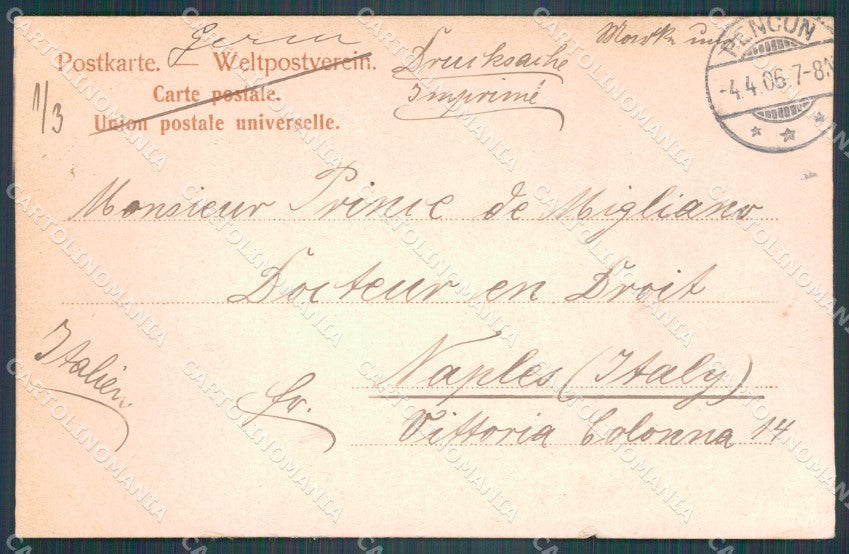 Postkarte. — Weltpostverein.
Carte postale.
Union postale universelle.
Drucksache
Imprimé
Marke
PENCUN
-4.4.06.7-8
1/3
Monsieur Prince de Migliano
Docteur en Droit
Italien
Naples (Italy)
fr.
Vittoria Colonna 14
CARTOLINOMANIA